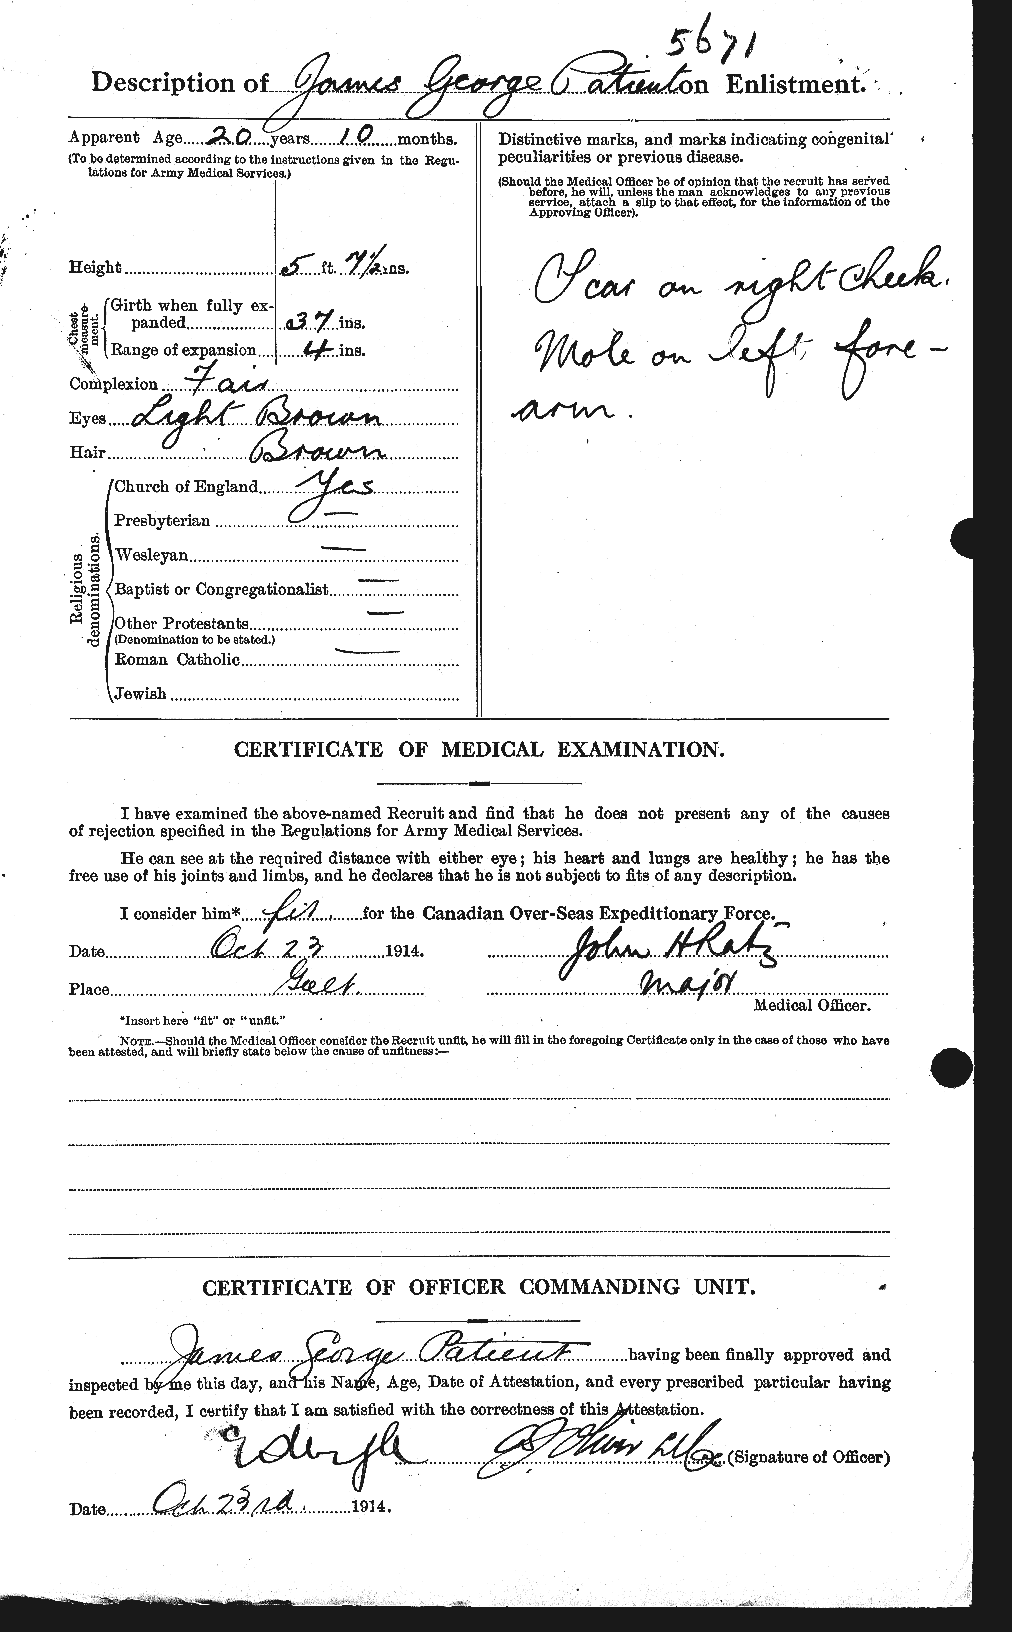 5671
Description of James George Patient on Enlistment.
Apparent Age 20 years 10 months.
(To be determined according to the instructions given in the Regu-
lations for Army Medical Services.)
Height 5 ft. 7 1/2 ins.
Chest measure-
ment.
Girth when fully ex-
panded 37 ins.
Range of expansion 4 ins.
Complexion Fair
Eyes Light Brown
Hair Brown
Religious
denominations.
Church of England Yes
Presbyterian —
Wesleyan —
Baptist or Congregationalist —
Other Protestants —
(Denomination to be stated.)
Roman Catholic —
Jewish
Distinctive marks, and marks indicating congenital
peculiarities or previous disease.
(Should the Medical Officer be of opinion that the recruit has served
before, he will, unless the man acknowledges to any previous
service, attach a slip to that effect, for the information of the
Approving Officer).
Scar on right cheek.
Mole on left fore-
arm.
CERTIFICATE OF MEDICAL EXAMINATION.
I have examined the above-named Recruit and find that he does not present any of the causes
of rejection specified in the Regulations for Army Medical Services.
He can see at the required distance with either eye; his heart and lungs are healthy; he has the
free use of his joints and limbs, and he declares that he is not subject to fits of any description.
I consider him* fit for the Canadian Over-Seas Expeditionary Force.
Date Oct 23 1914. John H Ratz
Place Galt. Major
Medical Officer.
*Insert here "fit" or "unfit."
NOTE.—Should the Medical Officer consider the Recruit unfit, he will fill in the foregoing Certificate only in the case of those who have
been attested, and will briefly state below the cause of unfitness:—
CERTIFICATE OF OFFICER COMMANDING UNIT.
James George Patient having been finally approved and
inspected by me this day, and his Name, Age, Date of Attestation, and every prescribed particular having
been recorded, I certify that I am satisfied with the correctness of this Attestation.
(Signature of Officer)
Date Oct 23rd. 1914.